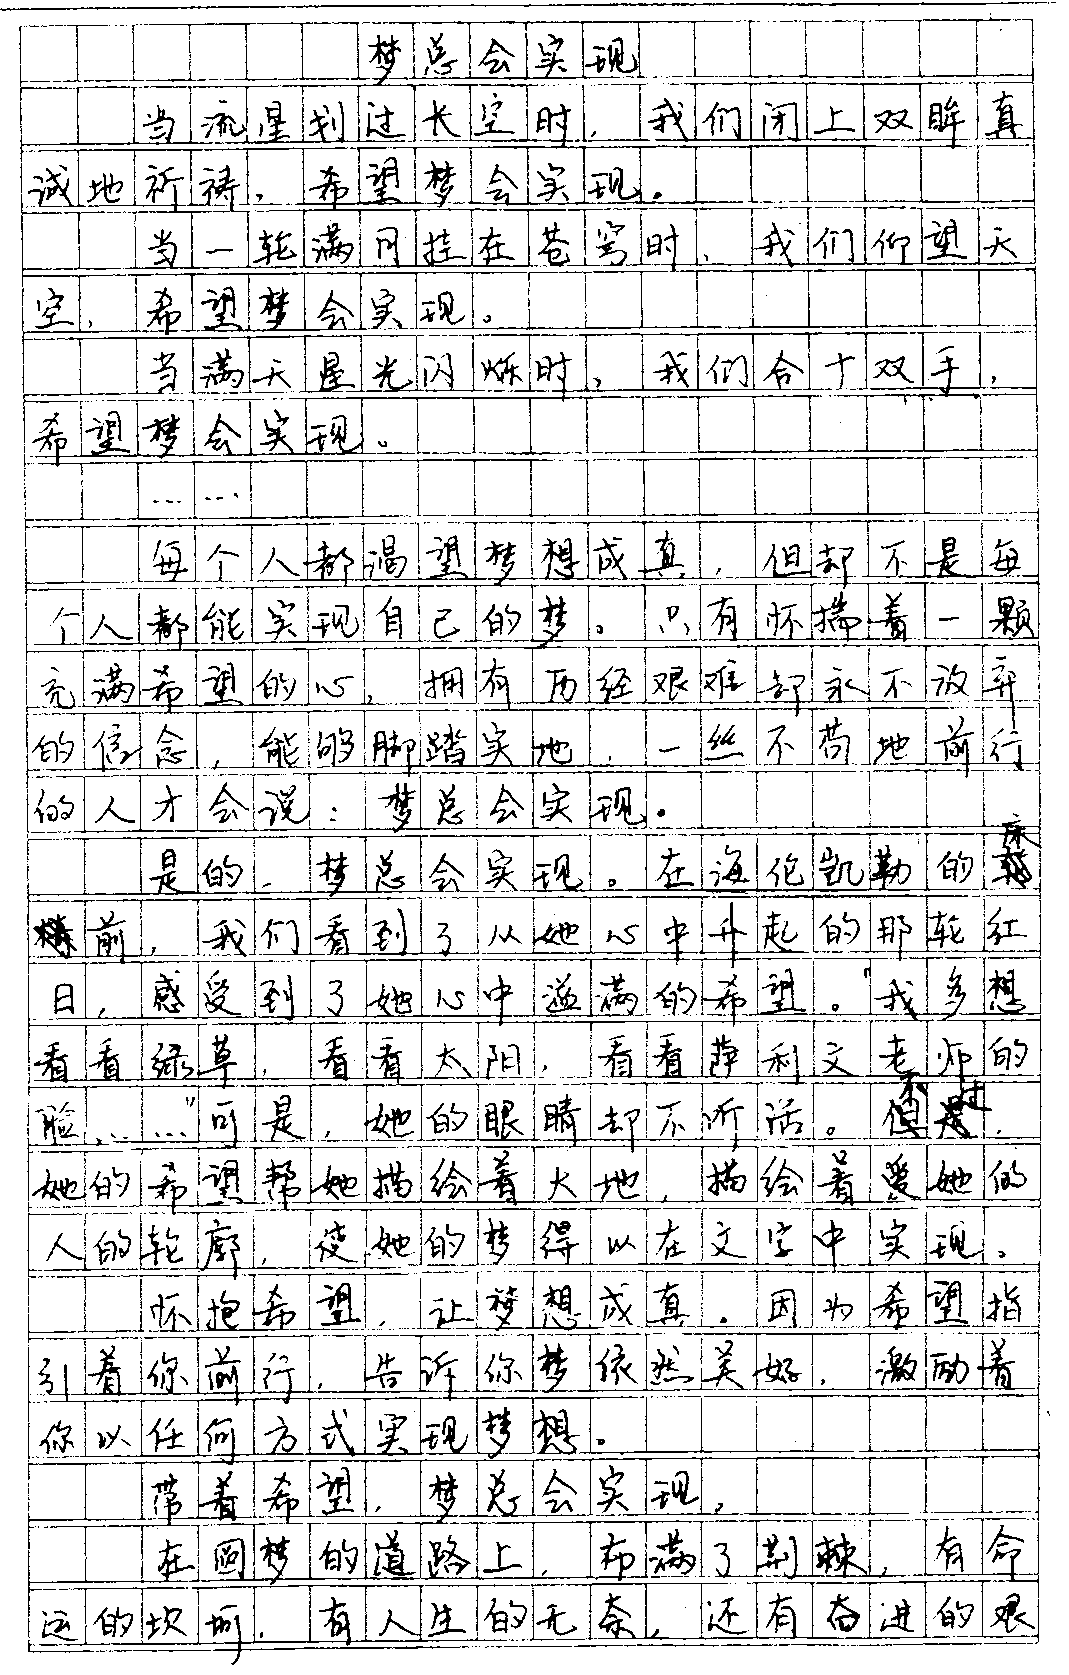 梦总会实现
当流星划过长空时，我们闭上双眸真
诚地祈祷，希望梦会实现。
当一轮满月挂在苍穹时，我们仰望天
空，希望梦会实现。
当满天星光闪烁时，我们合十双手，
希望梦会实现。
……
每个人都渴望梦想成真，但却不是每
个人都能实现自己的梦。只有怀揣着一颗
充满希望的心，拥有历经艰难却永不放弃
的信念，能够脚踏实地，一丝不苟地前行
的人才会说：梦总会实现。
是的，梦总会实现。在海伦凯勒的床
前，我们看到了从她心中升起的那轮红
日，感受到了她心中溢满的希望。"我多想
看看绿草，看看太阳，看看莎利文老师的
脸，……"可是，她的眼睛却不听话。不过，
她的希望帮她描绘着大地，描绘着爱她的
人的轮廓，使她的梦得以在文字中实现。
怀抱希望，让梦想成真。因为希望指
引着你前行，告诉你梦依然美好，激励着
你以任何方式实现梦想。
带着希望，梦总会实现，
在圆梦的道路上，布满了荆棘，有命
运的坎坷，有人生的无奈，还有奋进的艰